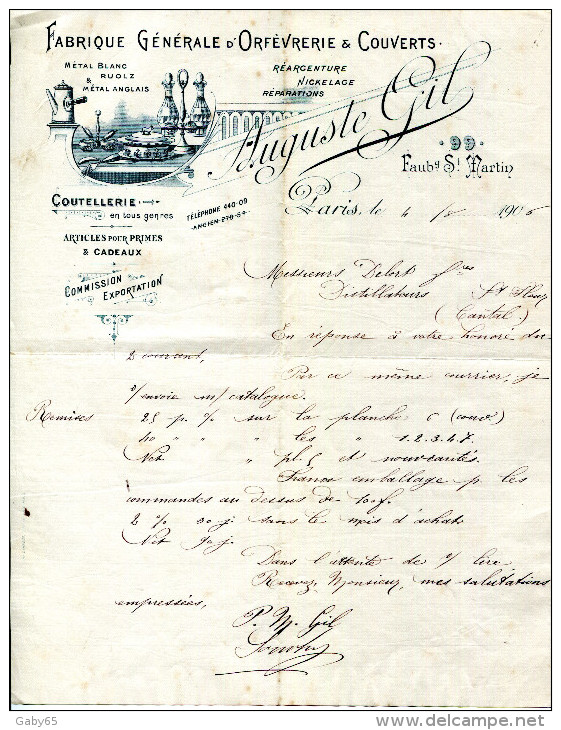 FABRIQUE GÉNÉRALE D'ORFÈVRERIE & COUVERTS.
MÉTAL BLANC
RUOLZ
&
MÉTAL ANGLAIS
RÉARGENTURE
NICKELAGE
RÉPARATIONS
Auguste Gil
99
Faubg St Martin
COUTELLERIE
en tous genres
TÉLÉPHONE 440-09
ARTICLES POUR PRIMES
& CADEAUX
COMMISSION
EXPORTATION
Paris, le 4 1906
Messieurs Delort fres
Distillateurs St Flour
(Cantal)
En réponse à votre honoré du
2 courant,
Par ce même courrier, je
v/ envoie m/ catalogue.
Remises 25 p. % sur la planche 6
40 " " " les " 1.2.3.4.7.
Net " pl. 5 et nouveautés.
Franco emballage p. les
commandes au dessus de 100 f.
2 % 30 j. sans le mois d'achat
Net 90 j.
Dans l'attente de v/ lire
Recevez, Monsieur, mes salutations
empressées,
P. M. Gil
Gaby65
www.delcampe.net